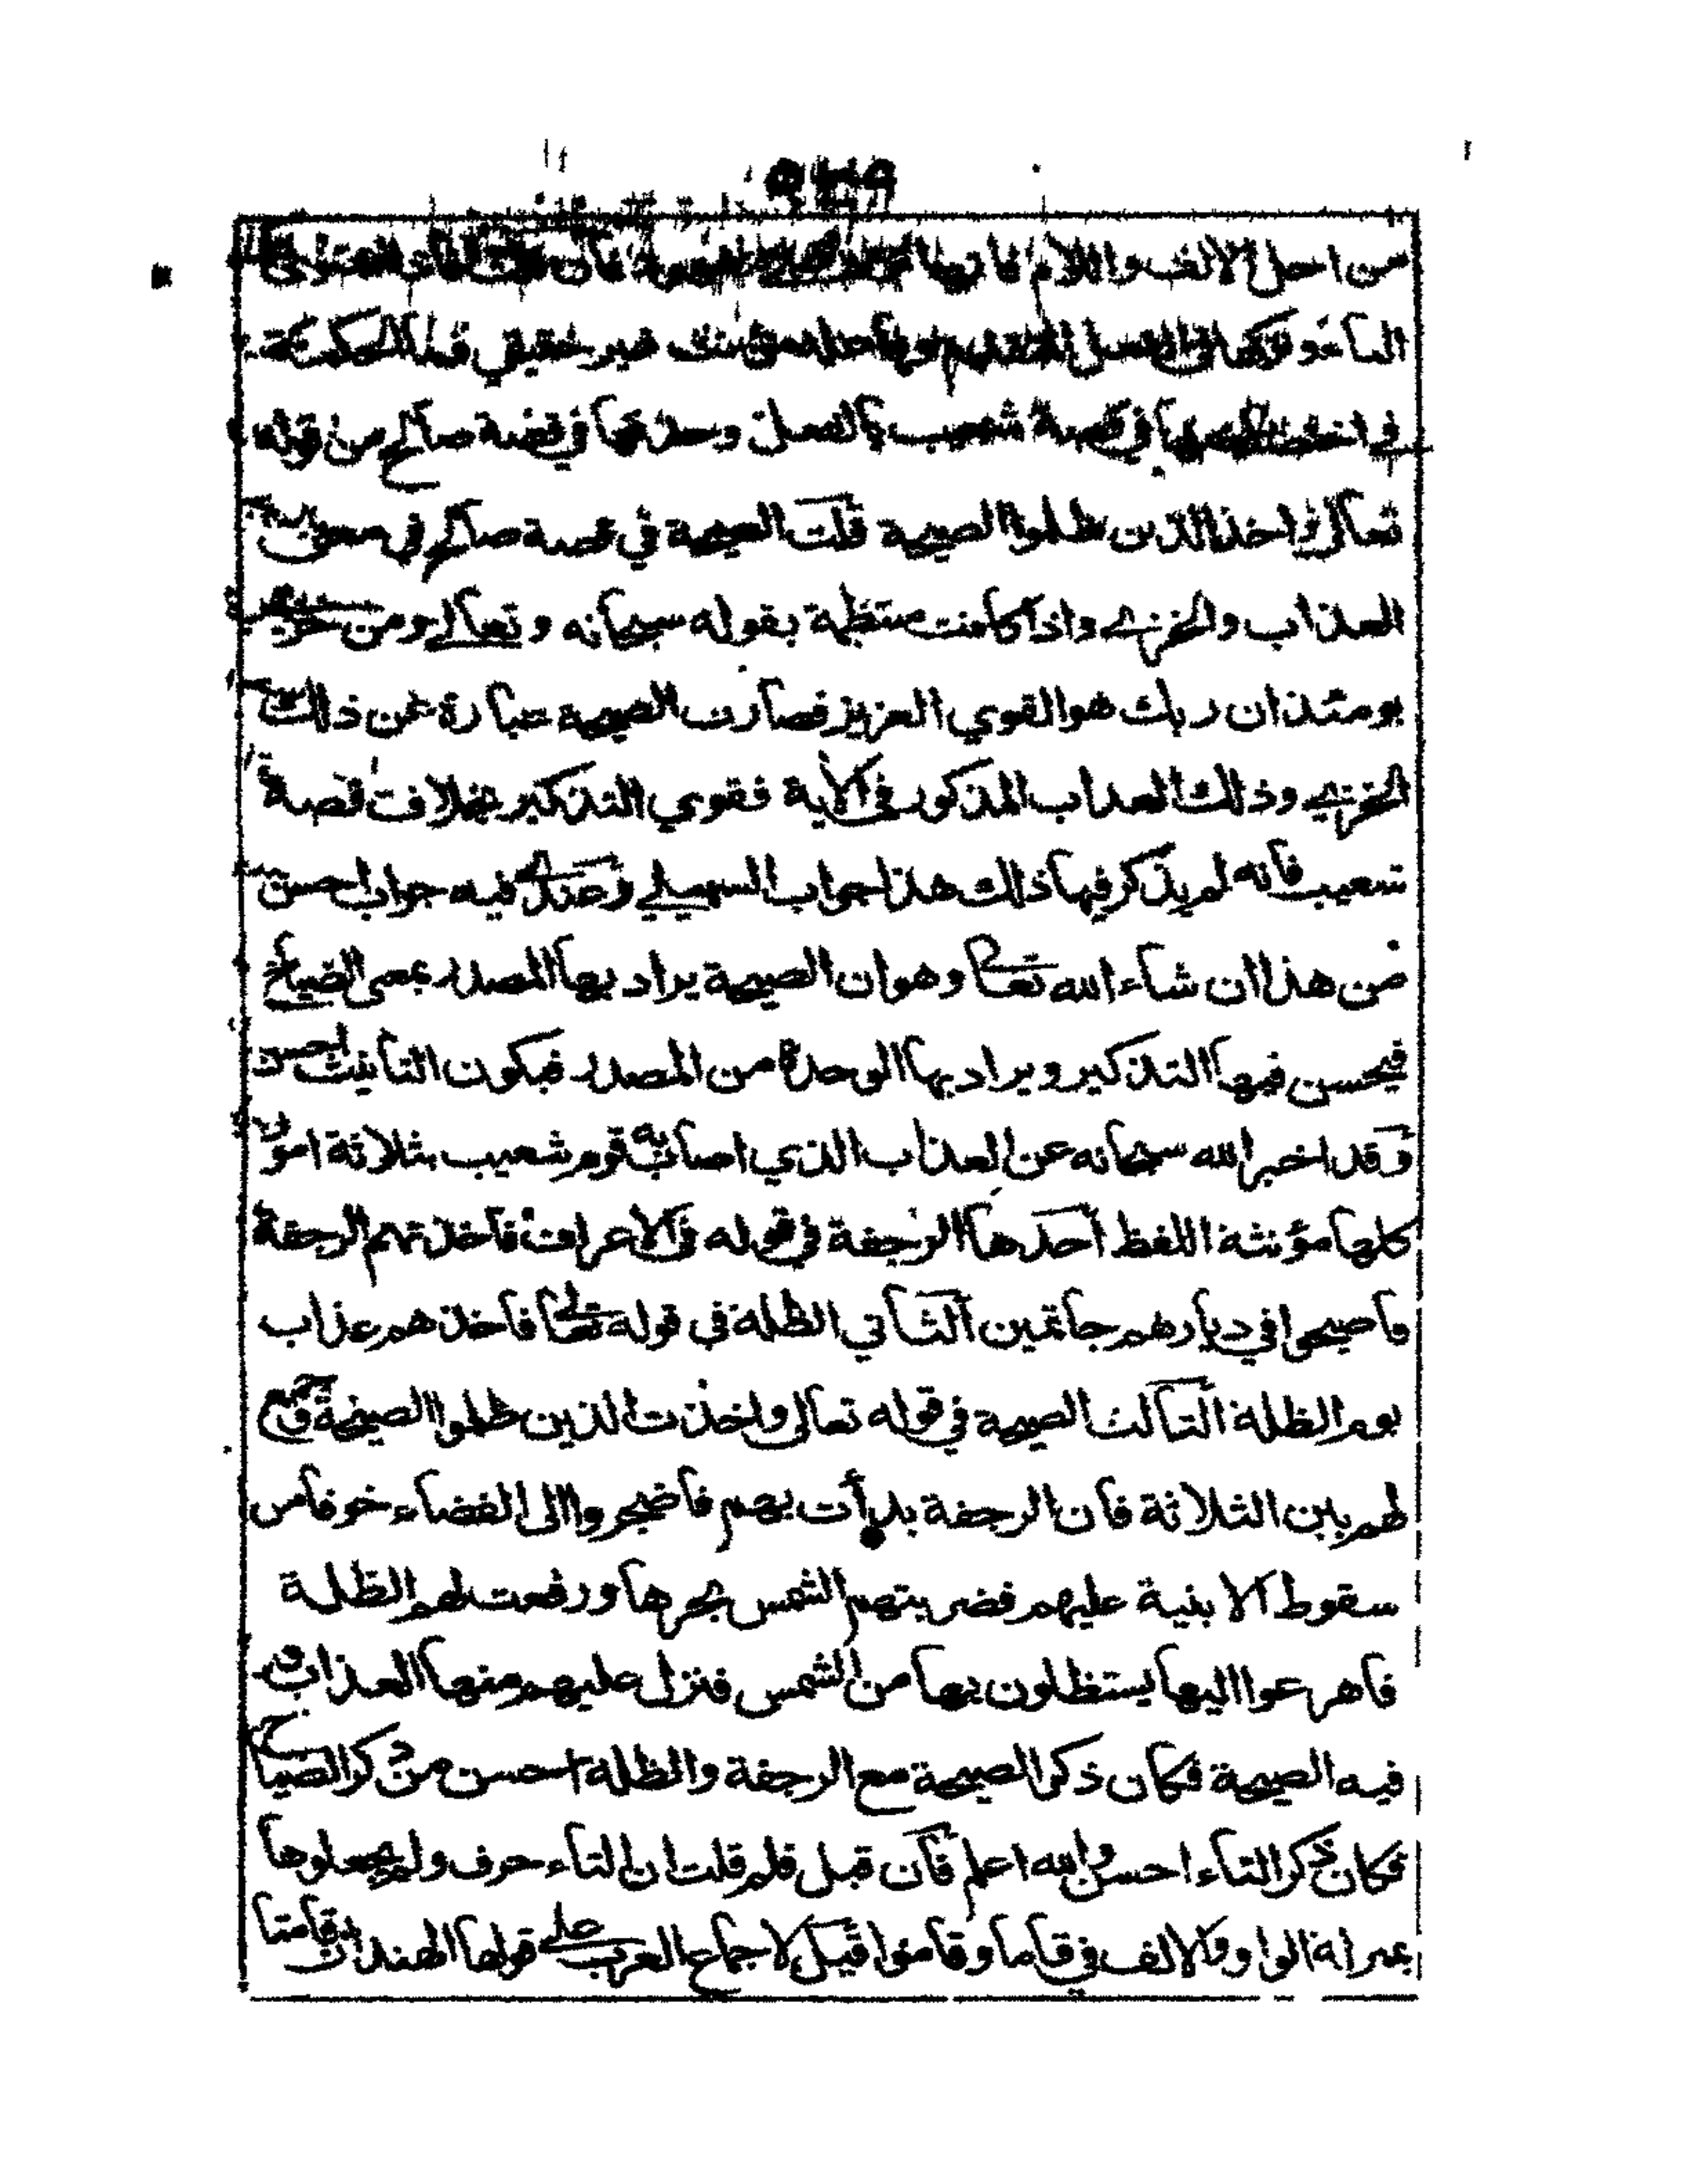 من اجل الالف واللام فانها
التاء وتركها في الفعل المتقدم غير حقيقي فما الحكمة
في اختصاصها في قصة شعيب بالفعل وحذفها في قصة صالح من قوله
تعالى واخذ الذين ظلموا الصيحة قلت الصيحة في قصة صالح في معنى
العذاب والخزي واذا كانت منتظمة بقوله سبحانه وتعالى ومن خزي
يومئذ ان ربك هو القوي العزيز فصارت الصيحة عبارة عن ذلك
الخزي وذلك العذاب المذكور في الاية فقوي التذكير بخلاف قصة
شعيب فانه لم يذكر فيها ذلك هذا جواب السهيلي وعندي فيه جواب احسن
من هذا ان شاء الله تعالى وهو ان الصيحة يراد بها المصدر بمعنى الصياح
فيحسن فيها التذكير ويراد بها الوحدة من المصدر فيكون التانيث احسن
وقد اخبر الله سبحانه عن العذاب الذي اصاب به قوم شعيب بثلاثة امور
كلها مؤنثة اللفظ احدها الرجفة في قوله في الاعراف فاخذتهم الرجفة
فاصبحوا في ديارهم جاثمين الثاني الظلة في قوله تعالى فاخذهم عذاب
يوم الظلة الثالث الصيحة في قوله تعالى واخذت الذين ظلموا الصيحة وجمع
لهم بين الثلاثة فان الرجفة بدأت بهم فاضحروا الى الفضاء خوفا من
سقوط الابنية عليهم فضربتهم الشمس بحرها ورفعت لهم الظلة
فاهرعوا اليها يستظلون بها من الشمس فنزل عليهم منها العذاب و
فيه الصيحة فكان ذكر الصيحة مع الرجفة والظلة احسن من ذكر الصياح
فكان ذكر التاء احسن والله اعلم فان قيل فلم قلت ان التاء حرف ولم يجعلوها
بمنزلة الواو والالف في قاما وقاموا قيل لاجماع العرب على قولها الهندان قامتا